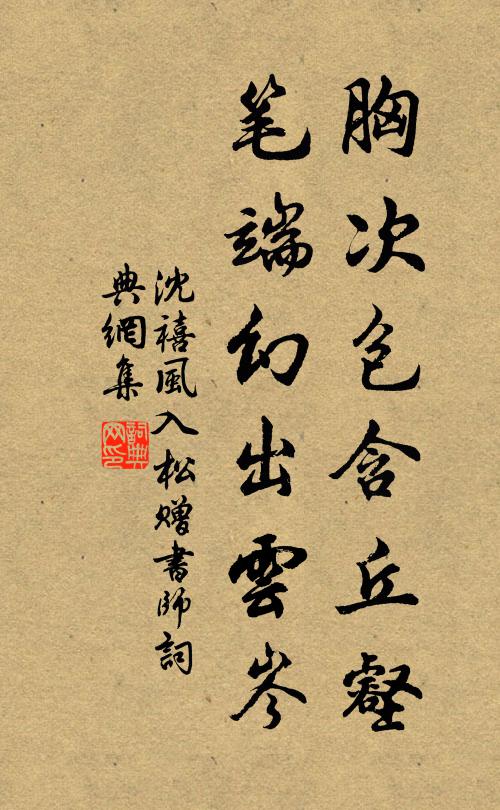 胸次包含丘壑
笔端幻出雲岑
沈禧風入松赠書師詞
典網集
詞典
网印